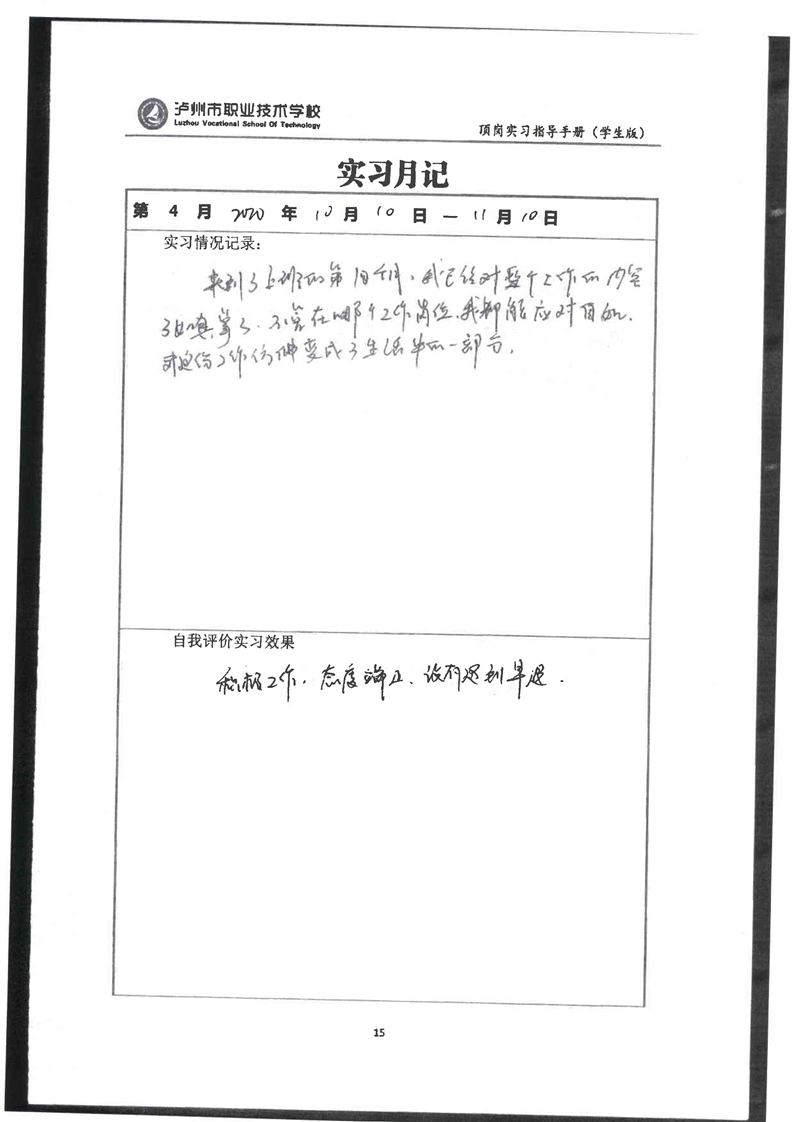 泸州市职业技术学校
Luzhou Vocational School Of Technology
顶岗实习指导手册（学生版）
实习月记
第 4 月 2020 年 10 月 10 日 — 11 月 10 日
实习情况记录：
来到了上班的第四个月，我已经对整个工作的内容
了如指掌了，不管在哪个工作岗位，我都能应对自如，
工作仿佛变成了生活中的一部分．
自我评价实习效果
积极工作，态度端正、没有迟到早退．
15